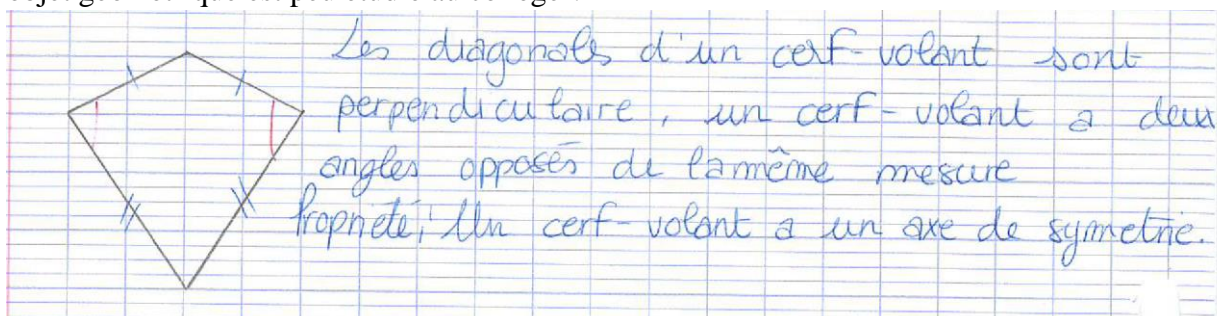 Les diagonales d'un cerf-volant sont
perpendiculaire, un cerf-volant a deux
angles opposés de la même mesure
Propriété; Un cerf-volant a un axe de symetrie.